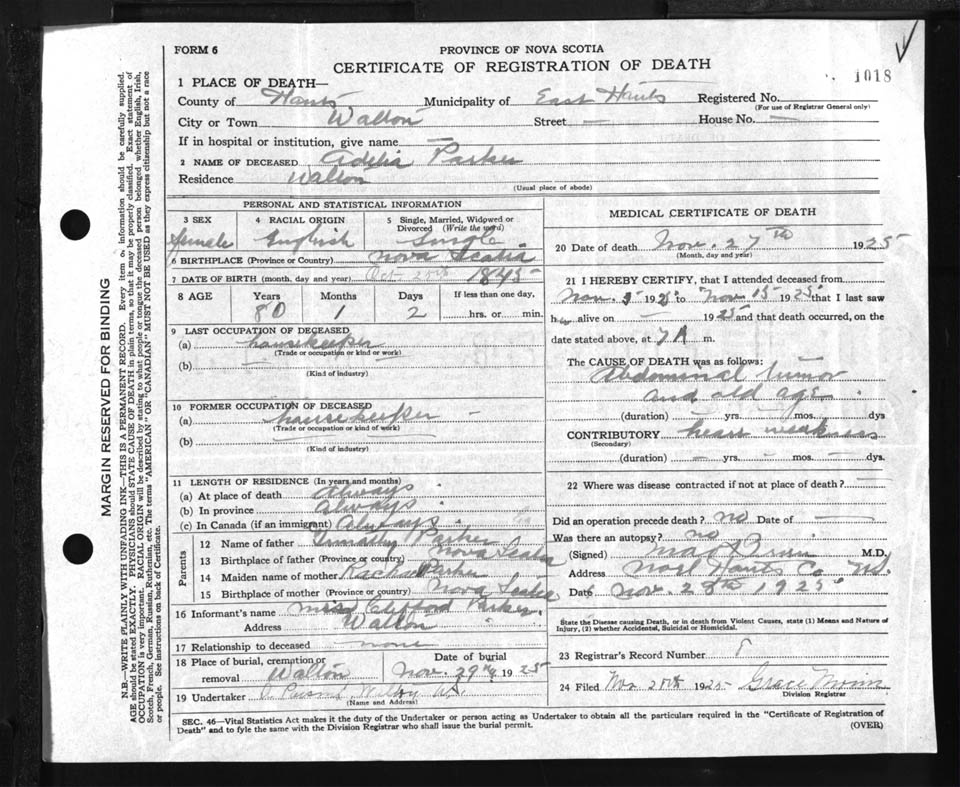 FORM 6
PROVINCE OF NOVA SCOTIA
CERTIFICATE OF REGISTRATION OF DEATH
1018
1 PLACE OF DEATH—
County of Hants Municipality of East Hants Registered No.
(For use of Registrar General only)
City or Town Walton Street — House No. —
If in hospital or institution, give name —
2 NAME OF DECEASED Adelia Parker
Residence Walton
(Usual place of abode)
PERSONAL AND STATISTICAL INFORMATION
3 SEX female
4 RACIAL ORIGIN English
5 Single, Married, Widowed or Divorced (Write the word) Single
6 BIRTHPLACE (Province or Country) Nova Scotia
7 DATE OF BIRTH (month, day and year) Oct 25th 1845
8 AGE Years 80 Months 1 Days 2 If less than one day, hrs. or min.
9 LAST OCCUPATION OF DECEASED
(a) housekeeper
(Trade or occupation or kind or work)
(b) —
(Kind of industry)
10 FORMER OCCUPATION OF DECEASED
(a) housekeeper
(Trade or occupation or kind or work)
(b)
(Kind of industry)
11 LENGTH OF RESIDENCE (In years and months)
(a) At place of death Always
(b) In province Always
(c) In Canada (if an immigrant) Always
Parents
12 Name of father Timothy Parker
13 Birthplace of father (Province or country) Nova Scotia
14 Maiden name of mother Rachel Parker
15 Birthplace of mother (Province or country) Nova Scotia
16 Informant's name Mrs Clifford Parker
Address Walton
17 Relationship to deceased none
18 Place of burial, cremation or removal Walton Date of burial Nov. 29th 1925
19 Undertaker
(Name and Address)
MEDICAL CERTIFICATE OF DEATH
20 Date of death Nov. 27th 1925
(Month, day and year)
21 I HEREBY CERTIFY, that I attended deceased from
Nov. 5 1925 to Nov 15 1925 that I last saw
her alive on — 1925 and that death occurred, on the
date stated above, at 7 A m.
The CAUSE OF DEATH was as follows:
Abdominal tumor
and old age
(duration) — yrs. — mos. — dys
CONTRIBUTORY heart weakness
(Secondary)
(duration) — yrs. — mos. — dys.
22 Where was disease contracted if not at place of death? —
Did an operation precede death? no Date of —
Was there an autopsy? no
(Signed) M.D.
Address Noel Hants Co NS.
Date Nov. 28th 1925
State the Disease causing Death, or in death from Violent Causes, state (1) Means and Nature of
Injury, (2) whether Accidental, Suicidal or Homicidal.
23 Registrar's Record Number 8
24 Filed Nov 28th 1925 Grace
Division Registrar
SEC. 46—Vital Statistics Act makes it the duty of the Undertaker or person acting as Undertaker to obtain all the particulars required in the "Certificate of Registration of
Death" and to fyle the same with the Division Registrar who shall issue the burial permit.
(OVER)
MARGIN RESERVED FOR BINDING
N.B.—WRITE PLAINLY WITH UNFADING INK—THIS IS A PERMANENT RECORD. Every item of information should be carefully supplied.
AGE should be stated EXACTLY. PHYSICIANS should STATE CAUSE OF DEATH in plain terms, so that it may be properly classified. Exact statement of
OCCUPATION is very important. RACIAL ORIGIN will be described by stating to what people or tongue the deceased person belonged whether English, Irish,
Scotch, French, German, Russian, Ruthenian, etc. The terms "AMERICAN" OR "CANADIAN" MUST NOT BE USED as they express citizenship but not a race
or people. See instructions on back of Certificate.